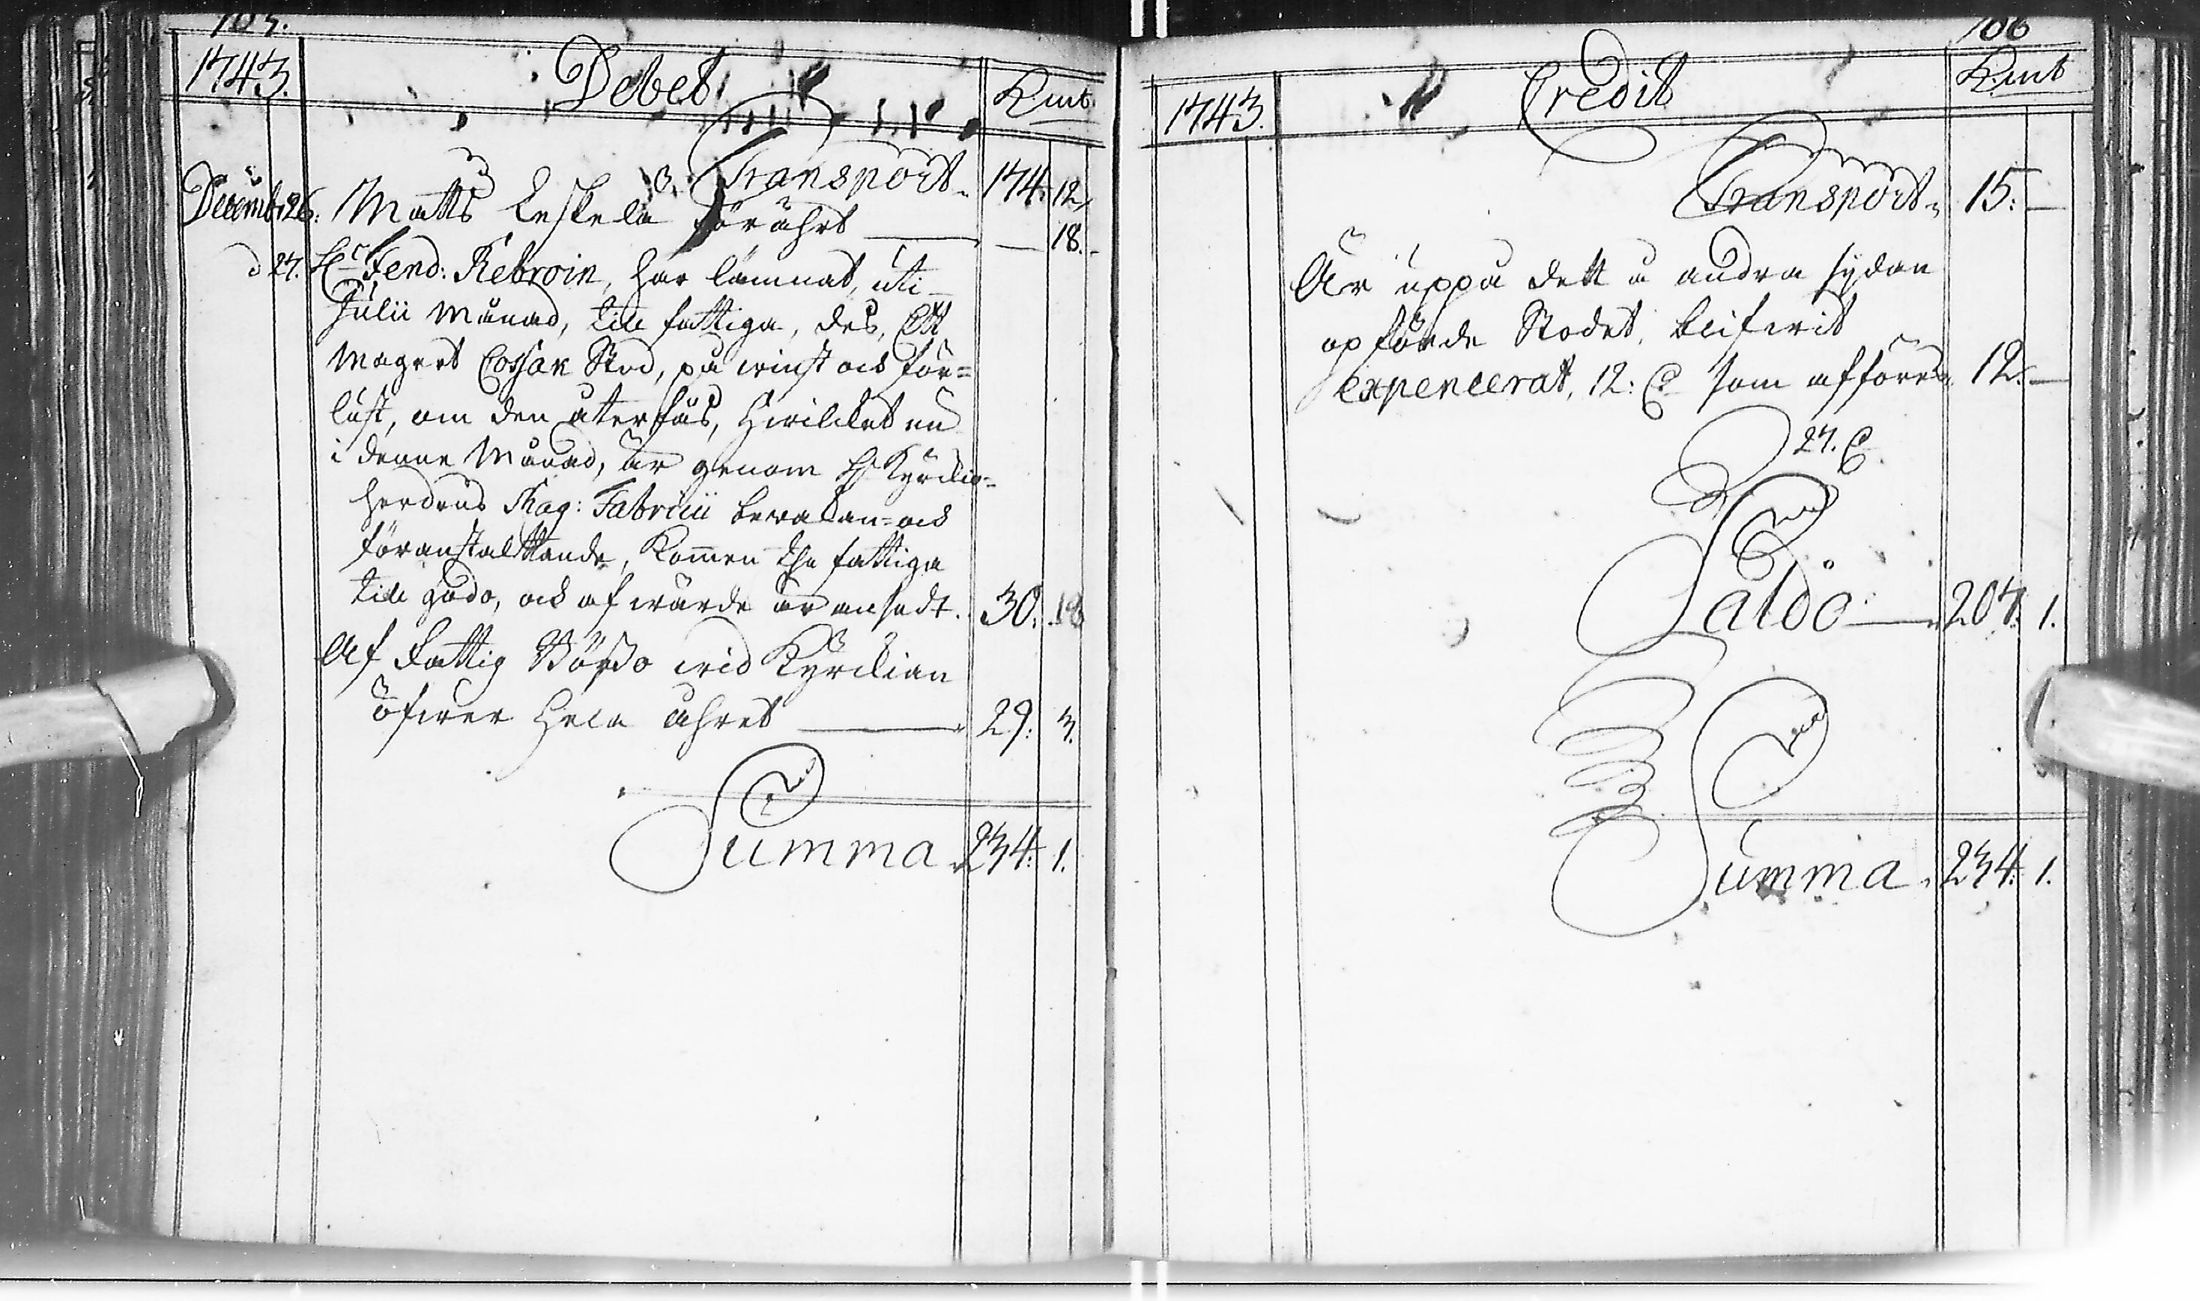 105.
1743. Debet Kmt
Transport. 174. 12.
Decemb. 26. Matts Leskelä förährt — — 18.
d 27. Hr Fend: Rebroin, har lämnat, uti
Julii Månad, till fattiga, des, Ett
magert Cossak Stod, på winst och för=
lust, om den återfås, Hwilcket nu
i denne Månad, är genom H Kyrckio=
herdens Mag: Fabricii beralan= och
föranstalltande, Kommen the fattiga
till godo, och af wärde är ansedt. 30. 18
Af Fattig Bösso wid Kyrckian
öfwer hela åhret — 29. 3.
Summa 234. 1.
106
1743. Credit Kmt
Transport. 15: —
Är uppå dett å andra sydan
opförde Stodet, blifwit
expencerat, 12: C som afföres 12. —
27. C.
Saldo — 207. 1.
Summa. 234. 1.